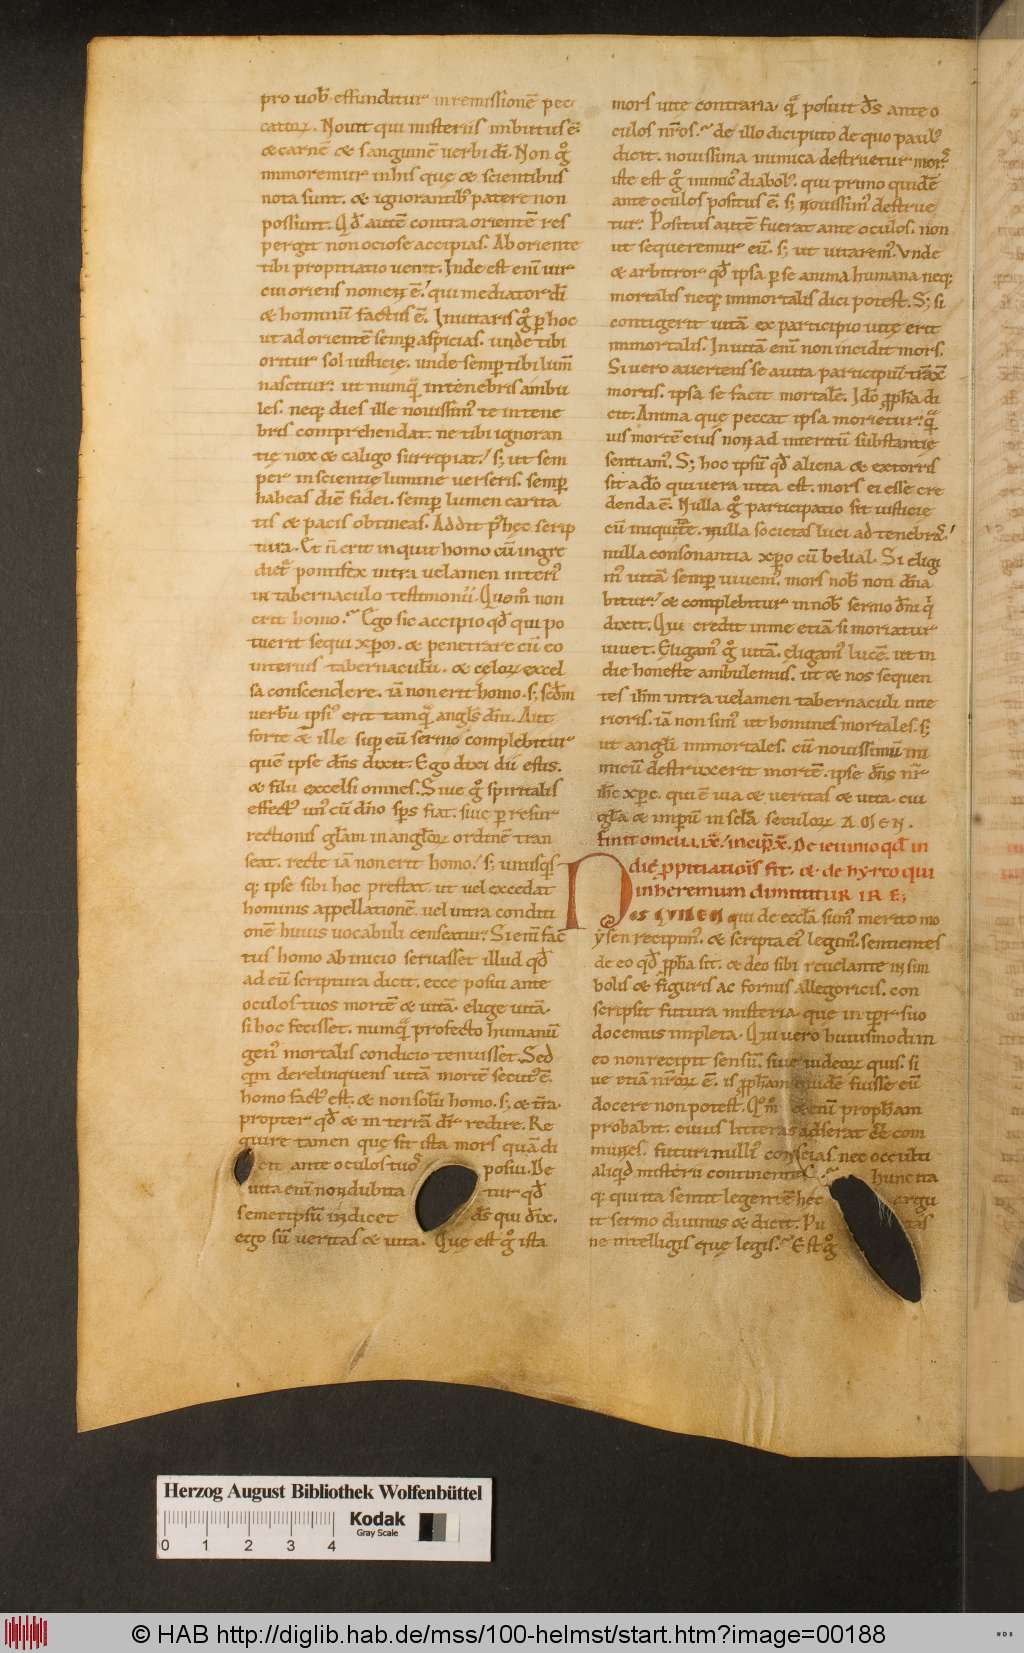 pro uob̄ effunditur in remissionē pec
catoꝝ. Nouit qui misteriis imbutus ē.
& carnē & sanguinē uerbi dī. Non gͦ
immoremur in his quę & scientibus
nota sunt. & ignorantibꝰ patere non
possunt. Qđ autē contra orientē res
pergit non ociose accipias. Ab oriente
tibi propitiatio uenit. Inde est enī uir
cui oriens nomen ē. qui mediator dī
& hominū factus ē. Inuitaris gͦ ꝑ hoc
ut ad orientē semꝑ aspicias. unde tibi
oritur sol iusticię. unde semꝑ tibi lumē
nascitur. ut numqͣ in tenebris ambu
les. neq; dies ille nouissimꝰ te in tene
bris comprehendat. ne tibi ignoran
tię nox & caligo surripiat. s; ut sem
per in scientię lumine uerseris. semꝑ
habeas diē fidei. semꝑ lumen carita
tis & pacis obtineas. Addit pꝰ hec scrip
tura. Et ñ erit inquit homo cū ingre
diet᷑ pontifex intra uelamen interiꝰ
in tabernaculo testimonii. Quom̄ non
erit homo. Ego sic accipio qđ qui po
tuerit sequi xp̄m. & penetrare cū eo
interius tabernaculū. & celoꝝ excel
sa conscendere. iā non erit homo. s; scđm
uerbū ipsiꝰ erit tamqͣ angls̄ dī. Aut
forte & ille sup eū sermo complebitur
quē ipse dn̄s dixit. Ego dixi dii estis.
& filii excelsi omnes. Siue gͦ spiritalis
effectꝰ unꝰ cū dn̄o sps̄ fiat. siue ꝑ resur
rectionis glam̄ in angloꝝ ordinē tran
seat. recte iā non erit homo. s; unusqs
q; ipse sibi hoc prestat. ut uel excedat
hominis appellationē. uel intra conditi
onē huius uocabuli censeatur. Si enī fac
tus homo ab inicio seruasset illud qđ
ad eū scriptura dicit. ecce posui ante
oculos tuos mortē & uitā. elige uitā.
si hoc fecisset. numqͣ profecto humanū
genꝰ mortalis condicio tenuisset. Sed
qm̄ derelinquens uitā mortē secutꝰ ē.
homo factꝰ est. & non solū homo. s; & t̄ra.
propter qđ & in terrā dr̄ redire. Re
quire tamen quę sit ista mors quā di
cit ante oculos tuos posui. De
uita enī non dubitatur qđ
semetipsū indicet ds̄ qui dix̄.
ego sū ueritas & uita. Quę est gͦ ista
mors uite contraria. qͣ posuit ds̄ ante o
culos nr̄os. de illo dici puto de quo paulꝰ
dicit. nouissima inimica destruetur mors.
iste est gͦ inimicꝰ diabolꝰ. qui primo quidē
ante oculos positus ē. s; nouissimꝰ destrue
tur. Positus autē fuerat ante oculos. non
ut sequeremur eū. s; ut uitaremꝰ. Vnde
& arbitror qđ ipsa ꝑ se anima humana neq;
mortalis neq; immortalis dici potest. S; si
contigerit uitā ex participio uitę erit
immortalis. In uitā enī non incidit mors.
Si uero auertens se a uita participiū traxit
mortis. ipsa se facit mortalē. Ido ꝓpha di
cit. Anima que peccat ipsa morietur. qͣ
uis mortē eius non ad interitū substantię
sentiamꝰ. S; hoc ipsū qđ aliena & extorris
sit a dō qui uera uita est. mors ei esse cre
denda ē. Nulla gͦ participatio sit iusticie
cū iniquitate. nulla societas luci ad tenebras.
nulla consonantia xp̄o cū belial. Si eligi
mꝰ uitā semꝑ uiuemꝰ. mors nob̄ non dn̄a
bitur. & complebitur in nob̄ sermo dn̄i qͥ
dixit. Qui credit in me etiā si moriatur
uiuet. Eligamꝰ gͦ uitā. eligamꝰ lucē. ut in
die honeste ambulemus. ut & nos sequen
tes ihm̄ intra uelamen tabernaculi inte
rioris. iā non simꝰ ut homines mortales. s;
ut angli immortales. cū nouissimū ini
micū destruxerit mortē. ipse dn̄s nr̄
ihc̄ xpc̄. qui ē uia & ueritas & uita. cui
gl̄a & imperiū in scl̄a seculoꝝ AMEN.
Finit omelia ix. incip x. De ieiunio qđ in
die ꝓpitiatiois fit. & de hyrco qui
in heremum dimittitur ire;
Nos quidem qui de eccl̄a sumꝰ merito mo
ysen recipimꝰ. & scripta eiꝰ legimꝰ. sentientes
de eo qđ ꝓpha sit. & deo sibi reuelante in sim
bolis & figuris ac formis allegoricis. con
scripsit futura misteria que in tp̄r suo
docemus impleta. Qui uero huiusmodi in
eo non recipit sensū. siue iudeoꝝ quis. si
ue etiā nr̄oꝝ ē. is ꝓpham quidē fuisse eū
docere non potest. Quom̄ & enī propham
probabit. cuius litteras adserat ēē com
munes. futuri nulliꝰ conscias nec occulti
aliqđ misterii continentes. hunc ita
q; qui ita sentit legentē hec argu
it sermo diuinus & dicit. Pu tas
ne intelligis quę legis. Est gͦ
Herzog August Bibliothek Wolfenbüttel
Kodak
Gray Scale
0 1 2 3 4
© HAB http://diglib.hab.de/mss/100-helmst/start.htm?image=00188